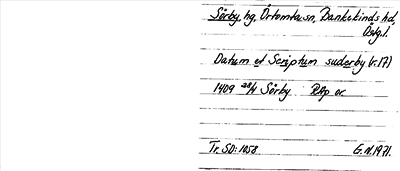 Sörby hg, Örtomta sn, Bankekinds hd,
Östg.l.
Datum et Scriptum suderby (r. 17)
1409 28/4 Sörby Rep or.
Tr. SD: 1058. G.M. 1971.